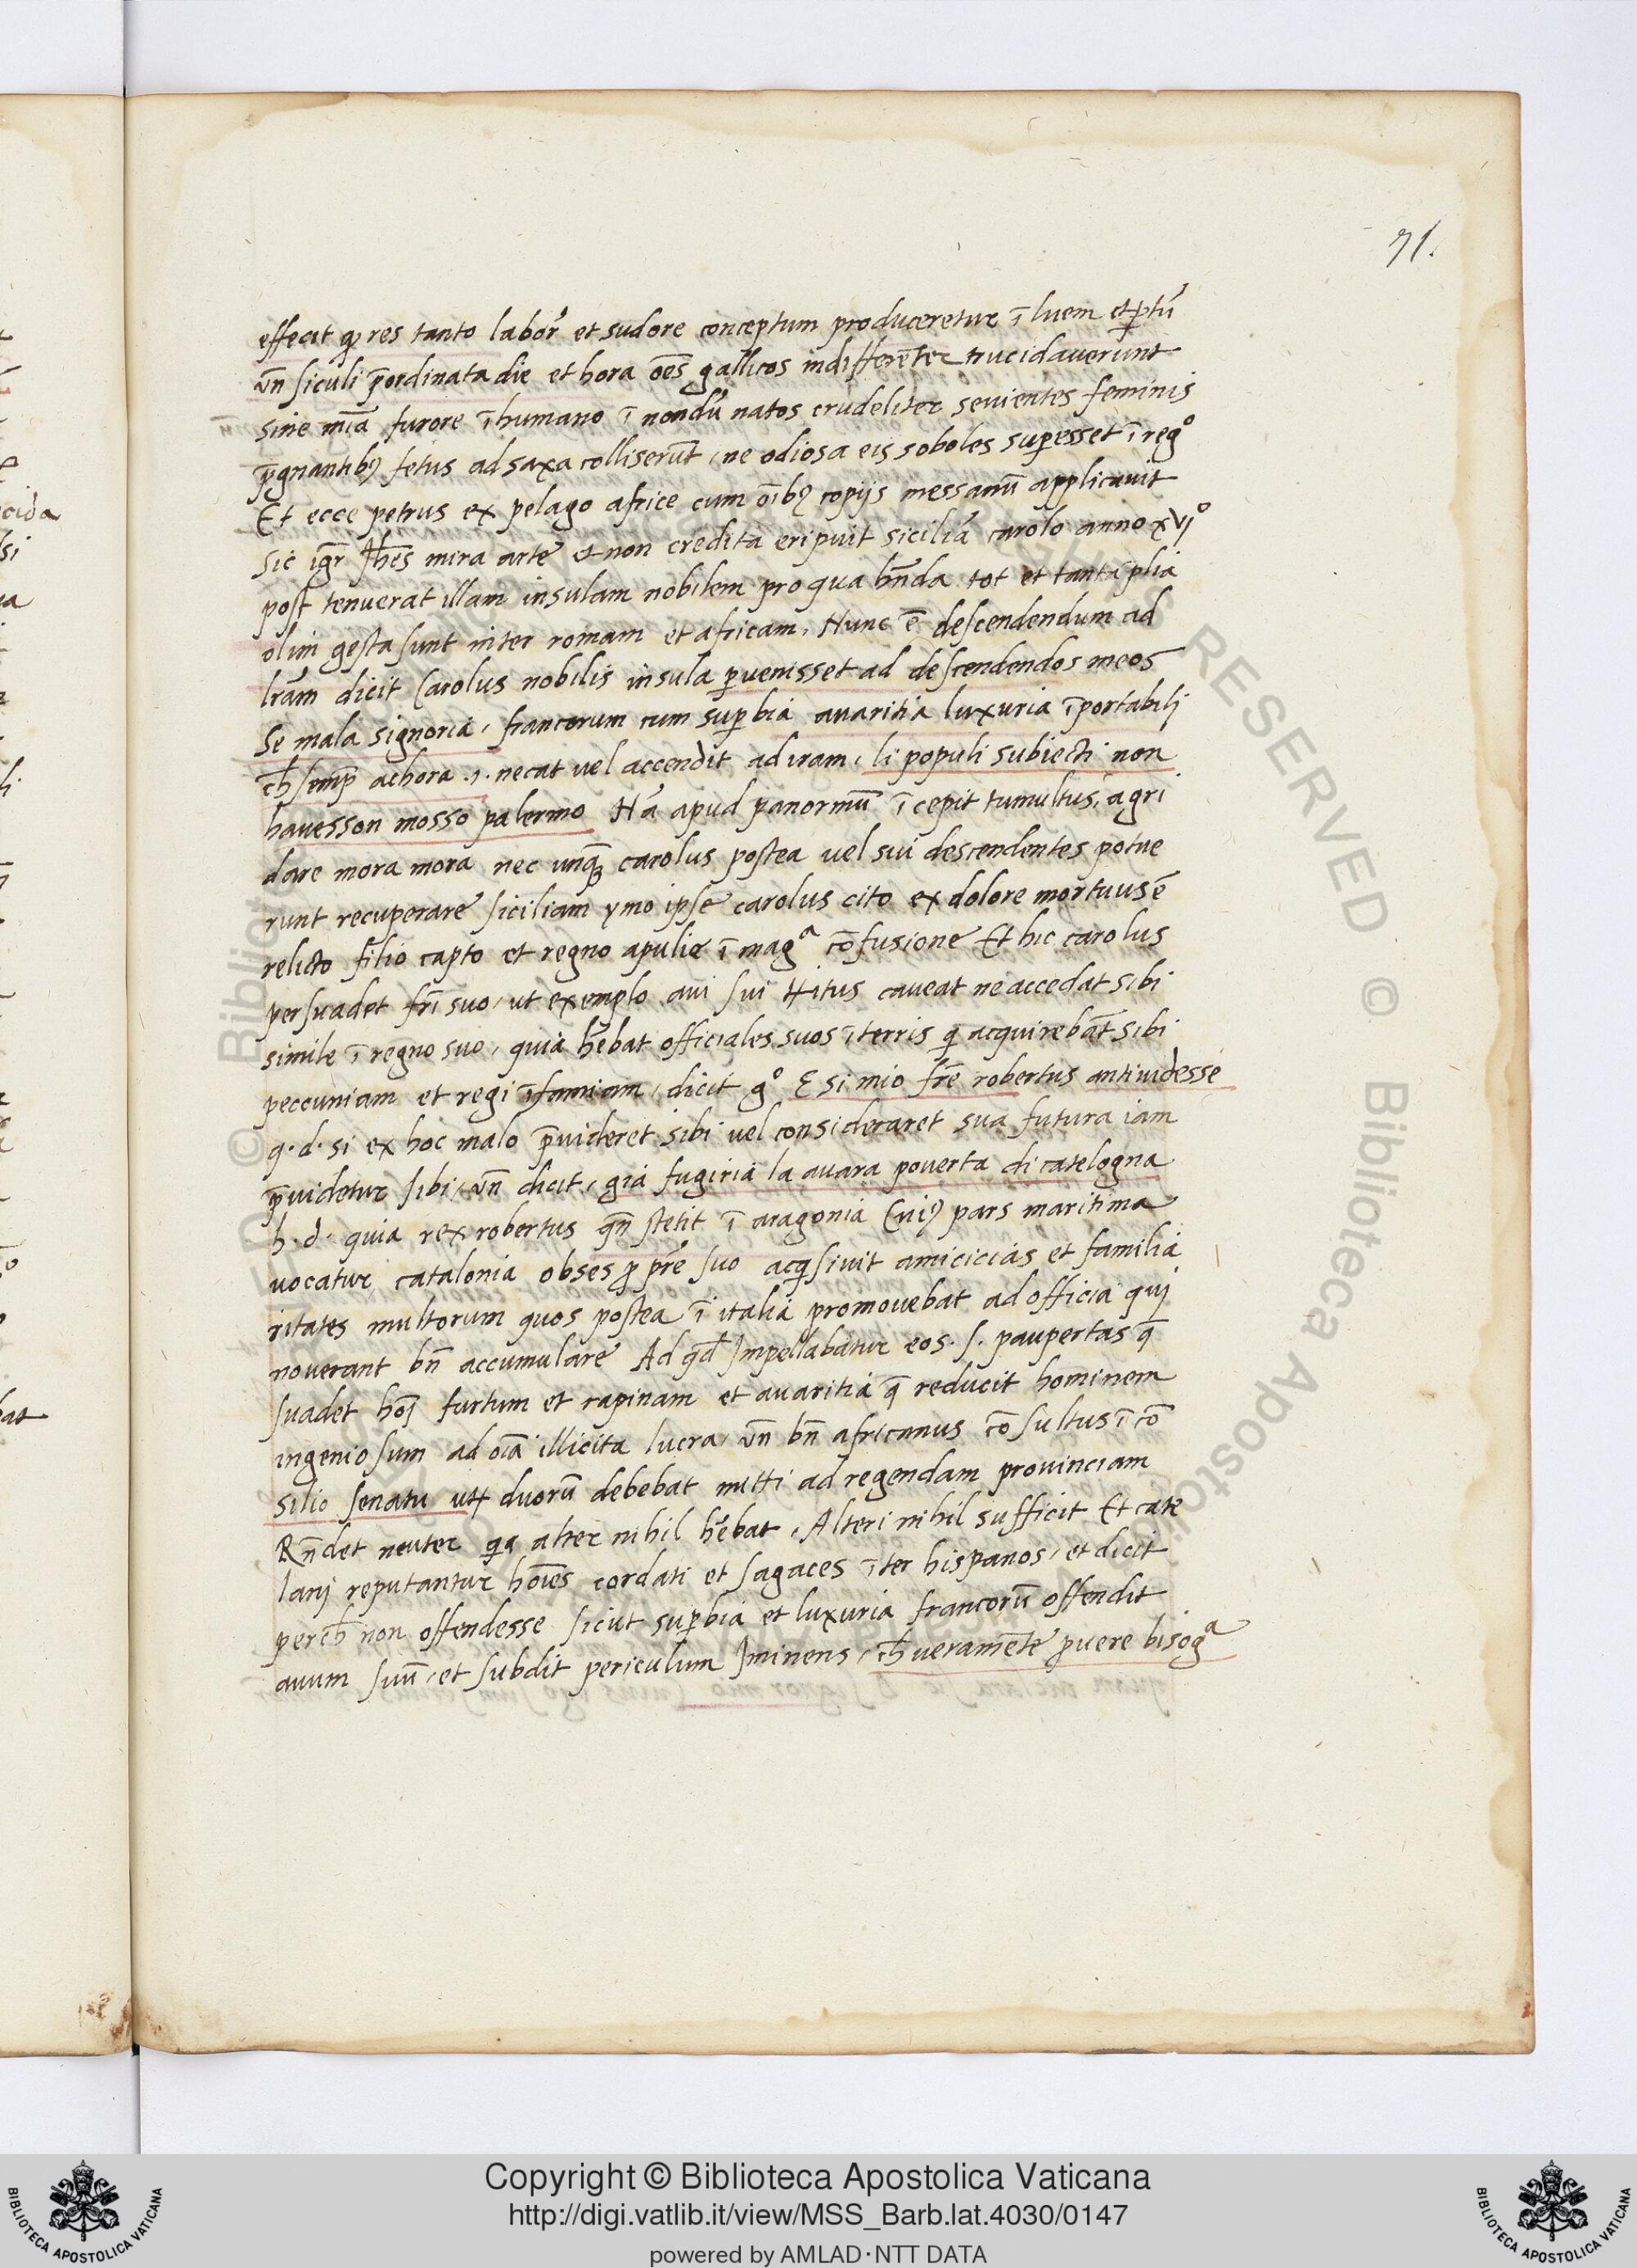 71.
effecit ꝙ res tanto labor̉ et sudore conceptum produceretur ī lucm et ꝑtū
vn̄ siculi p̄ordinata die et hora oēs gallicos indifferēter trucidauerunt
sine mīa furore īhumano ī nondū natos crudeliter seuientes feminis
p̄gnantibꝰ fetus ad saxa colliserūt, ne odiosa eis soboles suꝑesset ī regº
Et ecce petrus ex pelago africe cum oībꝰ copijs messanū applicauit
sic igr̄ Jhēs mira arte et non credita eripuit siciliā carolo anno xvjº
post tenuerat illam insulam nobilem pro qua hn̄da tot et tanta p̄lia
olim gesta sunt inter romam et africam, Nunc ē descendendum ad
lrām dicit Carolus nobilis insula ꝑuenisset ad descendendos meos
Se mala signoria, francorum cum suꝑbia auaritia luxuria īportabili
ch̄ semp̄ achora .i. necat vel accendit ad iram, li populi subiecti non
hauesson mosso palermo Nā apud panormū īcepit tumultus, a gri
dare mora mora nec unq̄ꝫ carolus postea uel sui descendentes potue
runt recuperare siciliam ymo ipse carolus cito ex dolore mortuus ē
relicto filio capto et regno apulie ī magª cōfusione Et hic carolus
persuadet frī suo, ut exemplo aui sui Titus caueat ne accedat sibi
simile ī regno suo, quia hēbat officiales suos ī terris q acquirebāt sibi
peccuniam et regi īfamiam, dicit gº E si mio frē robertus antiuidesse
q. d. si ex hoc malo p̄uideret sibi vel consideraret sua futura iam
p̄uidetur sibi, vn̄ dicit, gia fugiria la auara pouerta di catelogna
h. d. quia rex robertus qn̄ stetit ī aragonia cuiꝰ pars maritima
uocatur catalonia obses ꝓ prē suo acq̄siuit amicicias et familia
ritates multorum quos postea ī italia promouebat ad officia qui
nouerant bn̄ accumulare Ad qd̄ Jmpellabatur eos. s. paupertas q̄
suadet hoī furtum et rapinam et auaritia q̄ reducit hominem
ingeniosum ad oīa illicita lucra, vn̄ bn̄ africanus cōsultus ī cō
silio senatu utꝝ duorū debebat mitti ad regendam prouinciam
Rn̄det neuter qa alter nihil hēbat, Alteri nihil sufficit Et cate
lani reputantur hoīes cordati et sagaces īter hispanos, et dicit
perch̄ non offendesse sicut suꝑbia et luxuria francorū offendit
auum suū, et subdit periculum Jminens, ch̄ ueramēte ꝓuere bisogª
Copyright © Biblioteca Apostolica Vaticana
http://digi.vatlib.it/view/MSS_Barb.lat.4030/0147
powered by AMLAD·NTT DATA
BIBLIOTECA APOSTOLICA VATICANA
BIBLIOTECA APOSTOLICA VATICANA